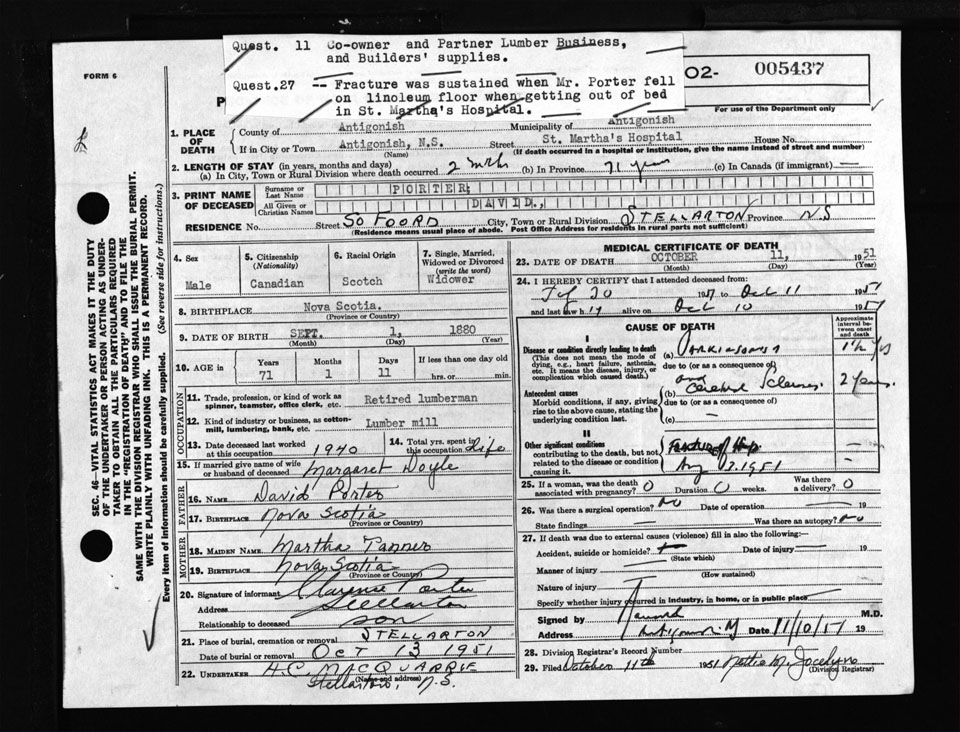 Quest. 11 Co-owner and Partner Lumber Business,
and Builders' supplies.
Quest.27 -- Fracture was sustained when Mr. Porter fell
on linoleum floor when getting out of bed
in St. Martha's Hospital.
FORM 6
O2- 005437
For use of the Department only
1. PLACE OF DEATH
County of Antigonish Municipality of Antigonish
If in City or Town Antigonish, N.S. Street St. Martha's Hospital House No.
(Name) (If death occurred in a hospital or institution, give the name instead of street and number)
2. LENGTH OF STAY (in years, months and days)
(a) In City, Town or Rural Division where death occurred 2 mths (b) In Province 71 years (c) In Canada (if immigrant) —
3. PRINT NAME OF DECEASED
Surname or Last Name PORTER,
All Given or Christian Names DAVID.,
RESIDENCE No. Street SO FOORD City, Town or Rural Division STELLARTON Province N.S
(Residence means usual place of abode. Post Office Address for residents in rural parts not sufficient)
4. Sex Male
5. Citizenship (Nationality) Canadian
6. Racial Origin Scotch
7. Single, Married, Widowed or Divorced (write the word) Widower
8. BIRTHPLACE Nova Scotia.
(Province or Country)
9. DATE OF BIRTH SEPT. 1, 1880
(Month) (Day) (Year)
10. AGE in Years 71 Months 1 Days 11 If less than one day old
hrs. or min.
OCCUPATION
11. Trade, profession, or kind of work as spinner, teamster, office clerk, etc. Retired lumberman
12. Kind of industry or business, as cotton-mill, lumbering, bank, etc. Lumber mill
13. Date deceased last worked at this occupation 1940
14. Total yrs. spent in this occupation Life
15. If married give name of wife or husband of deceased Margaret Doyle
FATHER
16. NAME David Porter
17. BIRTHPLACE Nova Scotia
(Province or Country)
MOTHER
18. MAIDEN NAME Martha Tanner
19. BIRTHPLACE Nova Scotia
(Province or Country)
20. Signature of informant Clarence Porter
Address Stellarton
Relationship to deceased son
21. Place of burial, cremation or removal STELLARTON
Date of burial or removal OCT 13 1951
22. UNDERTAKER H.C. MACQUARRIE
(Name and address)
Stellarton, N.S.
MEDICAL CERTIFICATE OF DEATH
23. DATE OF DEATH OCTOBER 11, 1951
(Month) (Day) (Year)
24. I HEREBY CERTIFY that I attended deceased from:
1951 to Oct 11 1951
and last saw h alive on Oct 10 1951
CAUSE OF DEATH
Approximate interval between onset and death
I
Disease or condition directly leading to death
(This does not mean the mode of dying, e.g., heart failure, asthenia, etc. It means the disease, injury, or complication which caused death.)
(a) Parkinsonism 1½ yrs
due to (or as a consequence of)
Antecedent causes
Morbid conditions, if any, giving rise to the above cause, stating the underlying condition last.
(b) and Cerebral Sclerosis 2 years.
due to (or as a consequence of)
(c) —
II
Other significant conditions
contributing to the death, but not related to the disease or condition causing it.
Fracture of Hip
Aug 1951
25. If a woman, was the death associated with pregnancy? 0 Duration 0 weeks. Was there a delivery? 0
26. Was there a surgical operation? no Date of operation — 19
State findings — Was there an autopsy? no
27. If death was due to external causes (violence) fill in also the following:—
Accident, suicide or homicide? Date of injury — 19
(State which)
Manner of injury —
(How sustained)
Nature of injury
Specify whether injury occurred in industry, in home, or in public place
Signed by M.D.
Address Antigonish Date 11/10/51 19
28. Division Registrar's Record Number
29. Filed October 11th 1951 Nettie M. Jocelyn
(Division Registrar)
SEC. 46—VITAL STATISTICS ACT MAKES IT THE DUTY
OF THE UNDERTAKER OR PERSON ACTING AS UNDER-
TAKER TO OBTAIN ALL THE PARTICULARS REQUIRED
IN THE "REGISTRATION OF DEATH" AND TO FILE THE
SAME WITH THE DIVISION REGISTRAR WHO SHALL ISSUE THE BURIAL PERMIT.
WRITE PLAINLY WITH UNFADING INK. THIS IS A PERMANENT RECORD.
Every item of information should be carefully supplied. (See reverse side for instructions.)